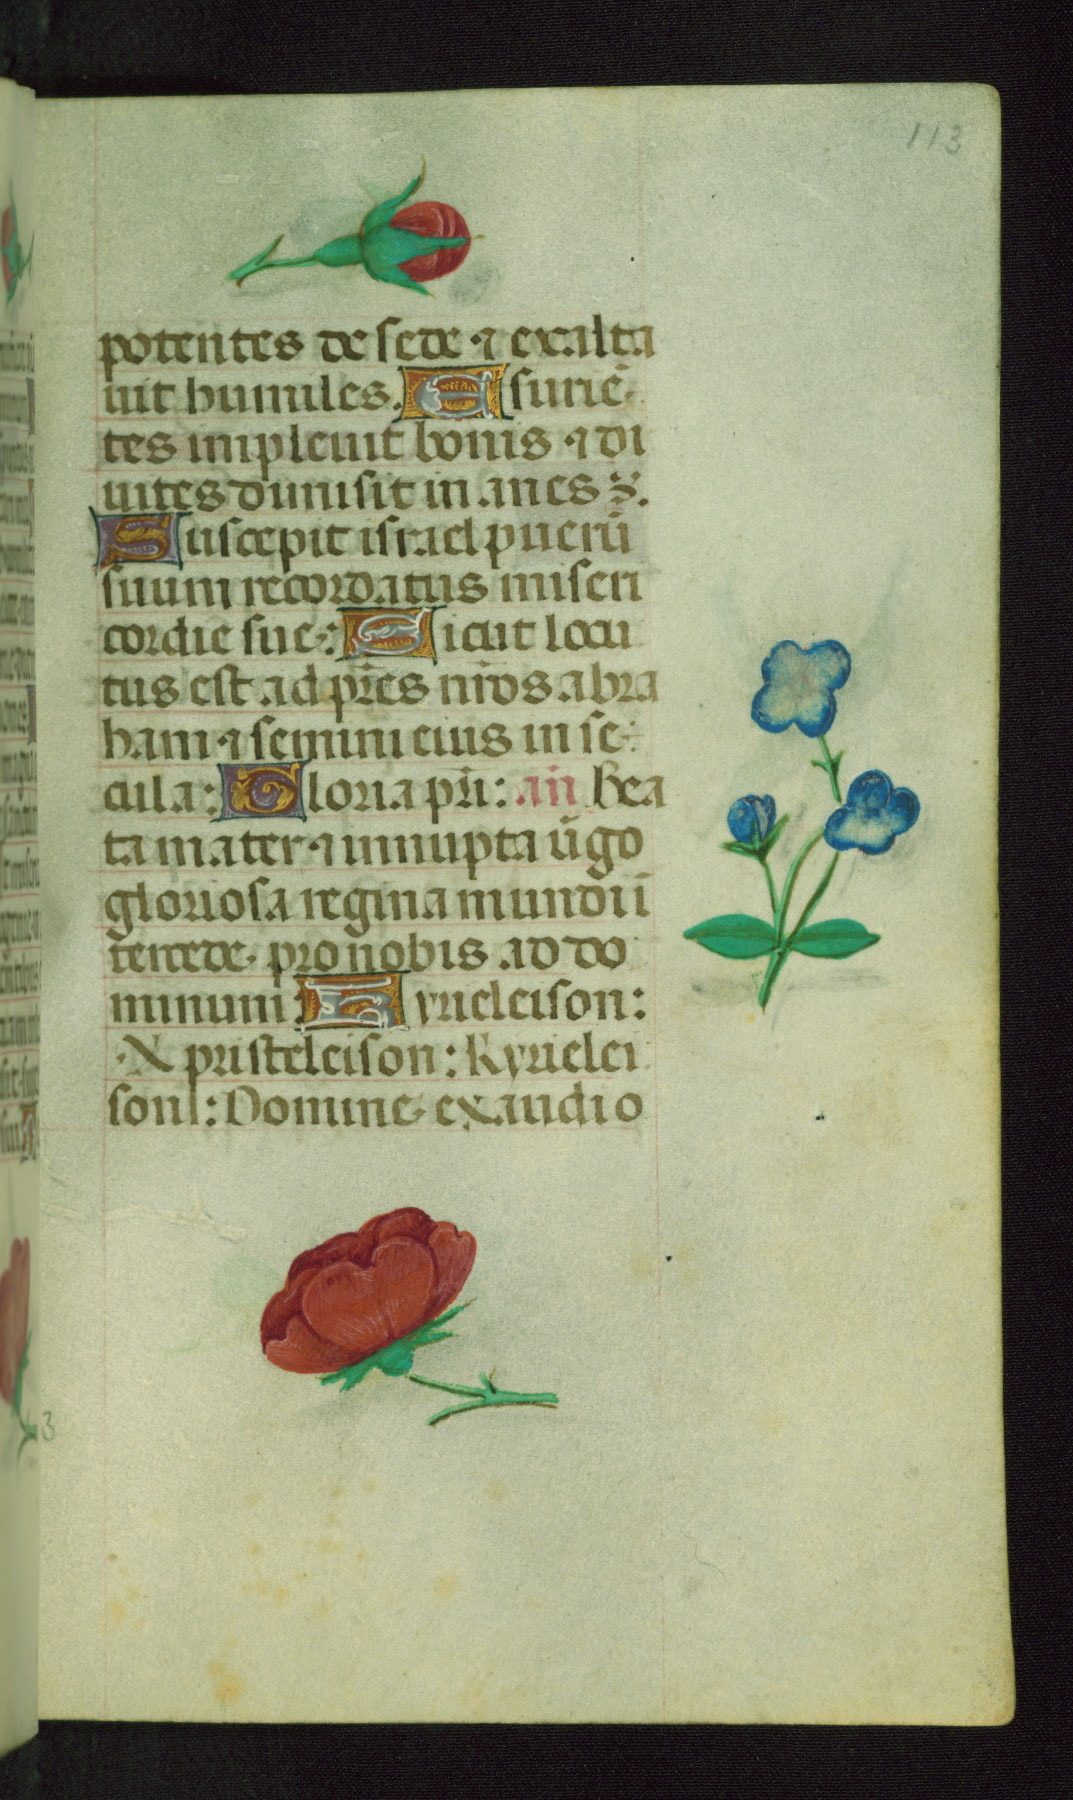 113
potentes de sede ⁊ exalta
uit humiles. Esuriē
tes impleuit bonis ⁊ di
uites dimisit in anes ⁊.
Suscepit israel puerū
suum recordatus miseri
cordie sue: Sicut locu
tus est ad pr̄es nr̄os abra
ham ⁊ semini eius in se
cula: Gloria pr̄i: an̄ Bea
ta mater ⁊ innupta ūgo
gloriosa regina mundi ī
tercede pro nobis ad do
minum: Kyrieleison:
Xpristeleison: Kyrielei
son: Domine exaudi o
3